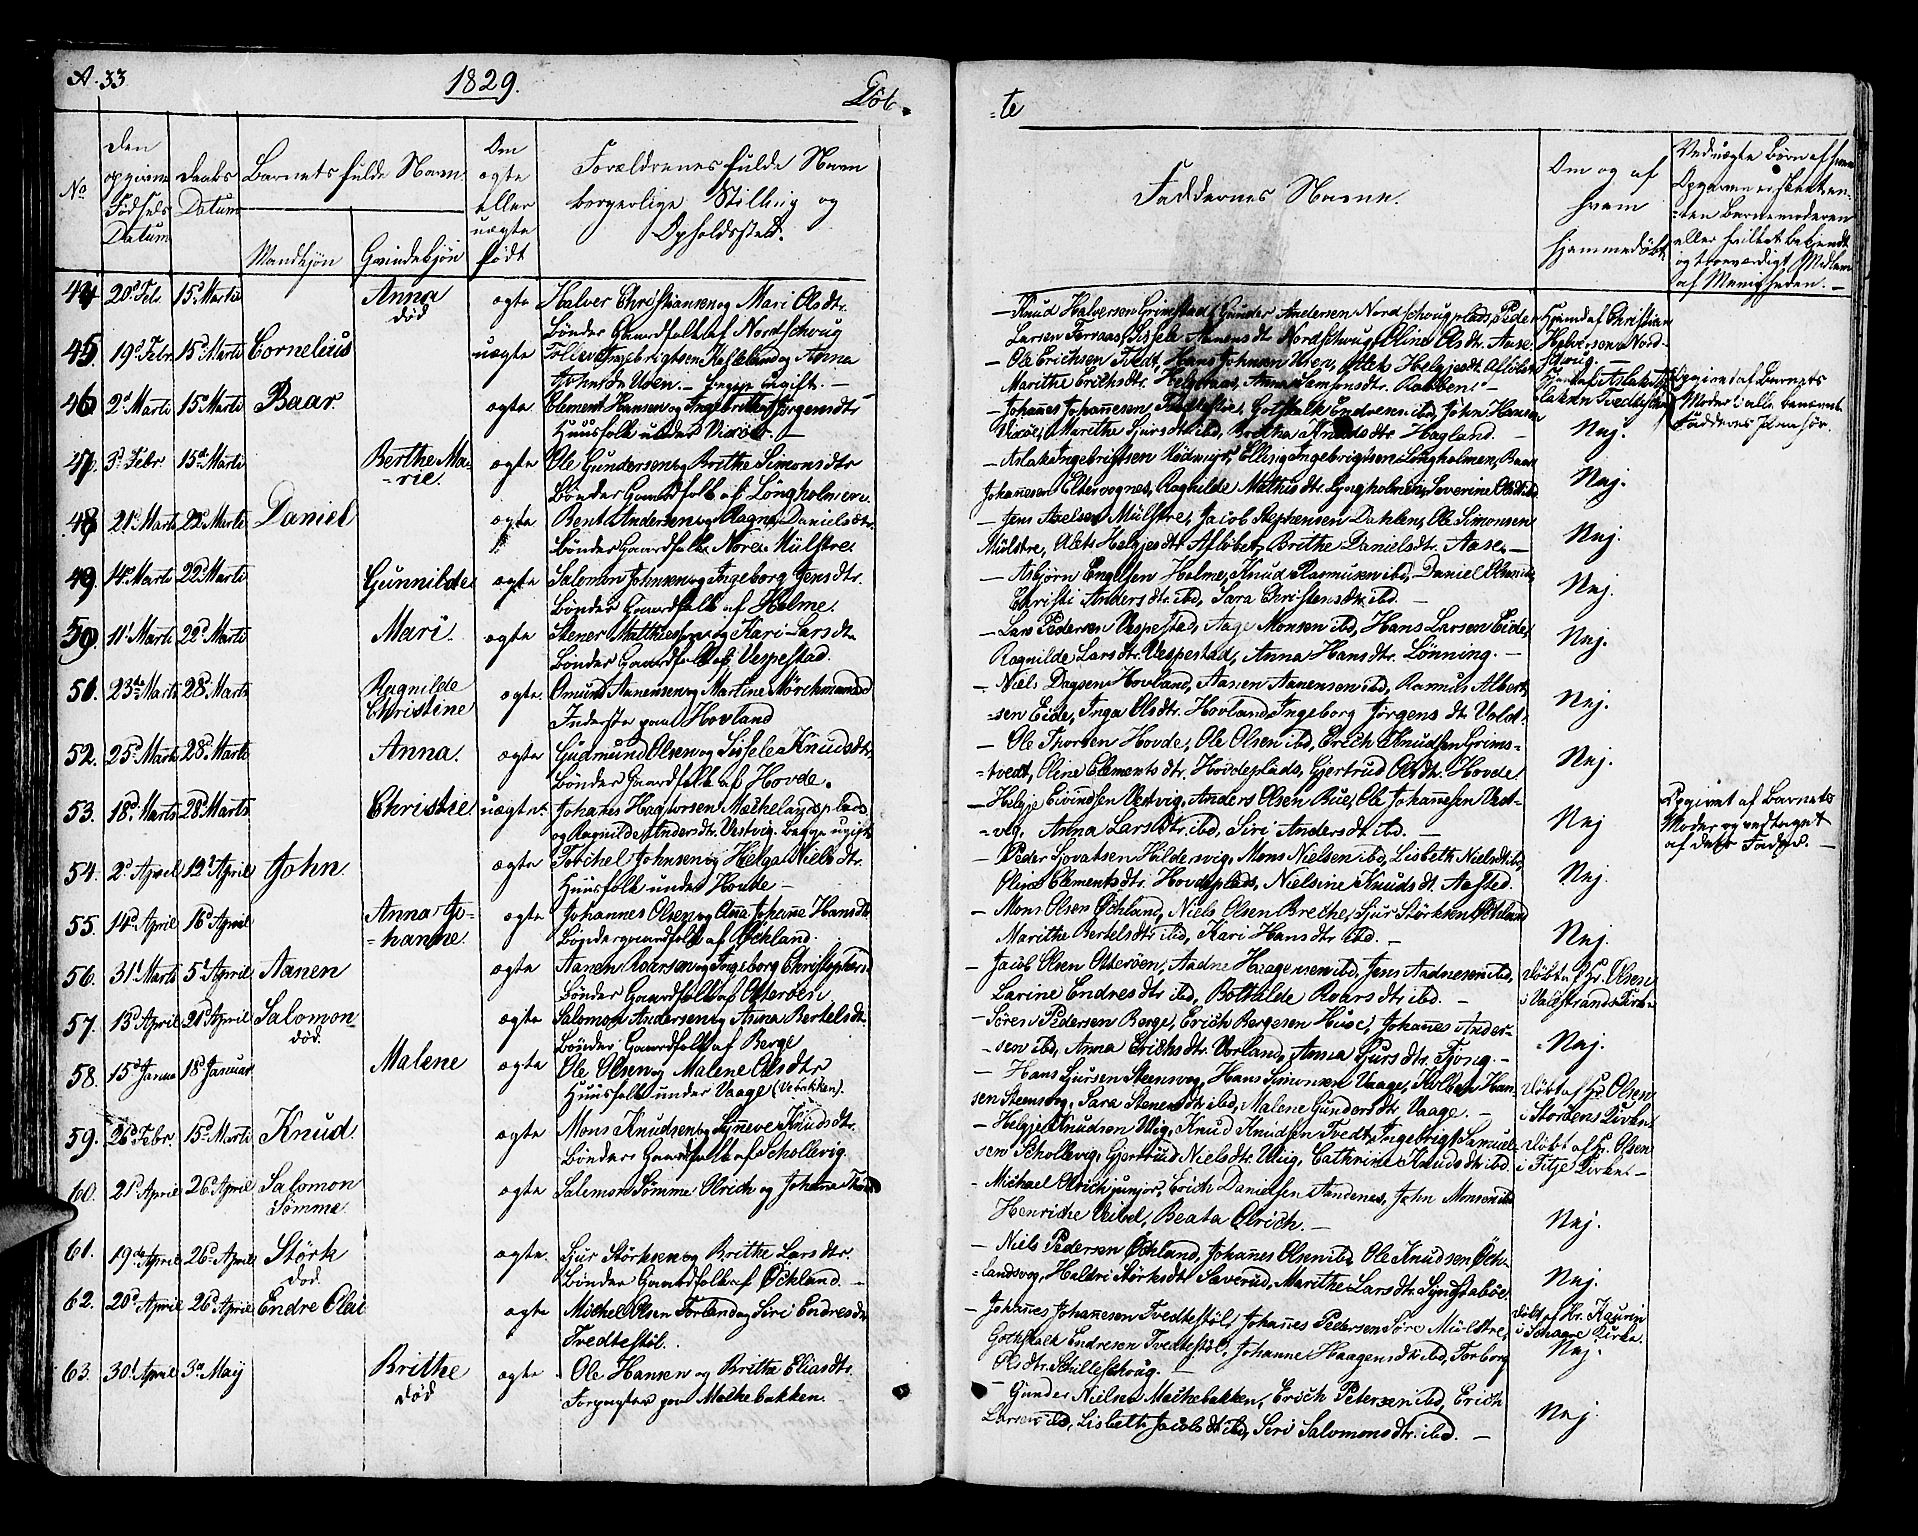 A. 33
1829.
Døb-
-te
No
Den opgivne Fødsels Datum
Daabs Datum
Barnets fulde Navn
Mandkjön
Qvindekjön
Om ægte eller uægte født
Forældrenes fulde Navn
borgerlige Stilling og
Opholdssted.
Faddernes Navne.
Om og af hvem hjemmedøbt
44 20d Febr. 15d Marts Anna død ægte Halver Christiansen og Mari Olsdtr.
Bönder Gaardfolk af Nordschoug
— Knud Halversen Grimstad, Gunder Andersen Nordschougplads, Peder
Larsen Sissele Aamensdt Nordschoug, Oline Olsdtr. Aase.
Hjemd. af Christian Halversen Nord-schoug
45 19d Febr. 15d Marts Cornelius uægte Tollev Ingebrigtsen og Anna
Johnsdtr Uren. — begge ugift. —
— Ole Erichsen Tvedt, Hans Johnsen Uren, Alek Helgjesdt Afløbet
Marithe Erichsdtr. Anna
Opgivet af Barnets Moder i alle benævnte Fadderes Paahør.
46 2d Marts 15d Marts Baar. ægte Clement Hansen og Ingebrithe Jörgensdtr
Huusfolk under Vixöe. —
— Johannes Johannesen Gotskalk Endresen ibd, John Hansen
Vixöe, Marithe Sjursdtr ibd, Britha Knudsdtr. Hagland. —
Nej.
47. 3d Febr 15d Marts Berthe Ma-
-rie. ægte Ole Gundersen og Brithe Simonsdtr
Bönder Gaardfolk af Löngholmen.
— Aslak Ingebrigtsen Rödungs, Elling Ingebrigtsen Löngholmen, Baar
Johannesen Eltervognes, Ragnilde Mathisdtr. Lyngholmen, Severine Olsdt ibd
Nej.
48 21d Marts 22d Marts Daniel ægte Bent Andersen og Ragna Danielsdtr.
Bönder Gaardfolk Nore Mülstre.
— Jens Axelsen Mülstre, Jacob Stephensen Dahlen, Ole Simonsen
Mülstre, Alets Helgjesdt Afløbet, Brithe Danielsdtr. Aase. —
Nej.
49 14d Marts 22d Marts Gunnilde ægte Salomon Johnsen og Ingeborg Jensdtr.
Bönder Gaardfolk af Holme.
— Asbjörn Engelsen Holme, Knud Rasmusen ibd, Daniel Olsen ibd,
Christi Andersdtr. ibd, Sara Christensdtr. ibd. —
Nej.
50. 11d Marts 22d Marts Mari. ægte Stener Matthiesen og Kari Larsdtr.
Bönder Gaardfolk af Vespestad.
— Lars Pedersen Vespestad, Aage Monsen ibd, Hans Larsen Eide,
Ragnilde Larsdtr. Vespestad, Anna Hansdtr. Lönning. —
Nej.
51. 23de Marts 28d Marts Ragnilde
Christine ægte Omund Aanensen og Martine Mörchmand
Inderste paa Hovland
— Niels Dagsen Hovland, Aanen Aanensen ibd, Rasmus Albert-
-sen Eide, Inga Olsdtr. Hovland, Ingeborg Jörgensdtr Vold.
Nej.
52. 25d Marts 28d Marts Anna. ægte Gudmund Olsen og Sissele Knudsdtr.
Bönder Gaardfolk af Hovde.
— Ole Thorsen Hovde, Ole Olsen ibd, Erich Knudsen Grims-
-tvedt, Oline Clementsdtr. Hovdeplads, Gjertrud Olsdtr. Hovde
Nej.
53. 18d Marts 28d Marts Christie. uægte Johanes Hagtorsen Mechelandsplads
og Ragnilde Andersdtr. Vestvig. begge ugift
— Helgje Eivindsen Vestvig, Anders Olsen Rue, Ole Johannesen Vest-
-vig, Anna Larsdtr. ibd, Siri Andersdt ibd. —
Nej
Opgivet af Barnets
Moder og vedtaget
af dets Fader. —
54. 2d April 12d April John ægte Torchel Johnsen og Helga Nielsdtr.
Huusfolk under Hovde —
— Peder Sjovatsen Hildersvig, Mons Nielsen ibd, Lisbeth Nielsdt ibd,
Oline Clementsdtr. Hovdeplads, Nielsine Knudsdt. Aasted.
Nej.
55. 14d April 16d April Anna Jo-
-hanne. ægte Johannes Olsen og Ana Johanne Hansdtr
Böndergaardfolk af Öchland.
— Mons Olsen Öchland, Niels Olsen Brethe, Sjur Störksen Öchland
Marithe Bertelsdtr ibd, Kari Hansdtr ibd. —
Nej.
56. 31d Marts 5d April Aanen ægte Aanen Roarsen og Ingeborg Christophersd
Bönder Gaardfolk af Otteröen
— Jacob Olsen Otteröen, Aadne Haagensen ibd, Jens Aadnesen ibd,
Larine Endresdtr ibd, Bothilde Roarsdtr ibd. —
døbt af Hr. Olsen
i Valestrands Kirke
57. 13d April 21d April Salomon
død. ægte Salomon Andersen og Anna Bertelsdt.
Bönder Gaardfolk af Berge
— Sören Pedersen Berge, Erich Bergesen Huse, Johannes Ander-
-sen ibd, Anna Erichsdtr. Vorland, Anna Sjursdtr. Tjong. —
Nej.
58. 15d Janua 18d Januar Malene ægte Ole Olsen og Malene Olsdtr
Huusfolk under Vaage (Vebakken).
— Hans Sjursen Steensvog, Hans Simonsen Vaage, Kolben Han-
sen Steensvog, Sara Stenersdtr ibd, Malene Gundersdtr. Vaage. —
døbt af Hr. Olsen
i Stordens Kirke
59. 26d Febr. 15d Marts Knud ægte Mons Knudsen og Synneve Knudsdtr.
Bönder Gaardfolk af Schollevig.
— Helgje Knudsen Vig, Knud Knudsen Tvedt, Ingebrigt Samuel-
sen Schollevig, Gjertrud Nielsdtr. Vig, Cathrine Knudsdtr ibd.
døbt af Hr. Olsen
i Fitje Kirke. —
60. 21d April 26d April Salomon
Sömme. ægte Salomon Sömme Olrich og Johanna
— Michael Olrich junior, Erich Danielsen Aadenes, John Monsen ibd
Henriche Veibel, Beata Olrich. —
Nej.
61. 19de April 26d April Störk
død. ægte Sjur Störksen og Brithe Larsdtr.
Bönder Gaardfolk af Öchland. —
— Niels Pedersen Öchland, Johannes Olsen ibd, Ole Knudsen Öch-
-landsvog, Haldri Störksdtr Saverud, Marithe Larsdtr.
Nej.
62. 20d April 26d April Endre Olai ægte Michel Olsen Forland og Siri Endresdtr
Tvedtestöl.
— Johannes Johannesen Tvedtestöl, Johannes Pedersen Söre Mülstre,
Gotskalk Endresen Tvedtestöl, Johanne Haagensdtr ibd, Torborg
Olsdtr. Schilleschoug. —
Døbt af Hr. Kaurin
i Schaare Kirke.
Nej.
63. 30d April 3d May Brithe
død ægte Ole Hansen og Britha Eliasdtr.
Forpagter paa Mochebakken.
— Gunder Nielsen Mochebakken, Erich Petersen ibd, Erich
Larsen ibd, Lisbeth Jacobsdt ibd, Siri Salomonsdtr. ibd. —
Nej.